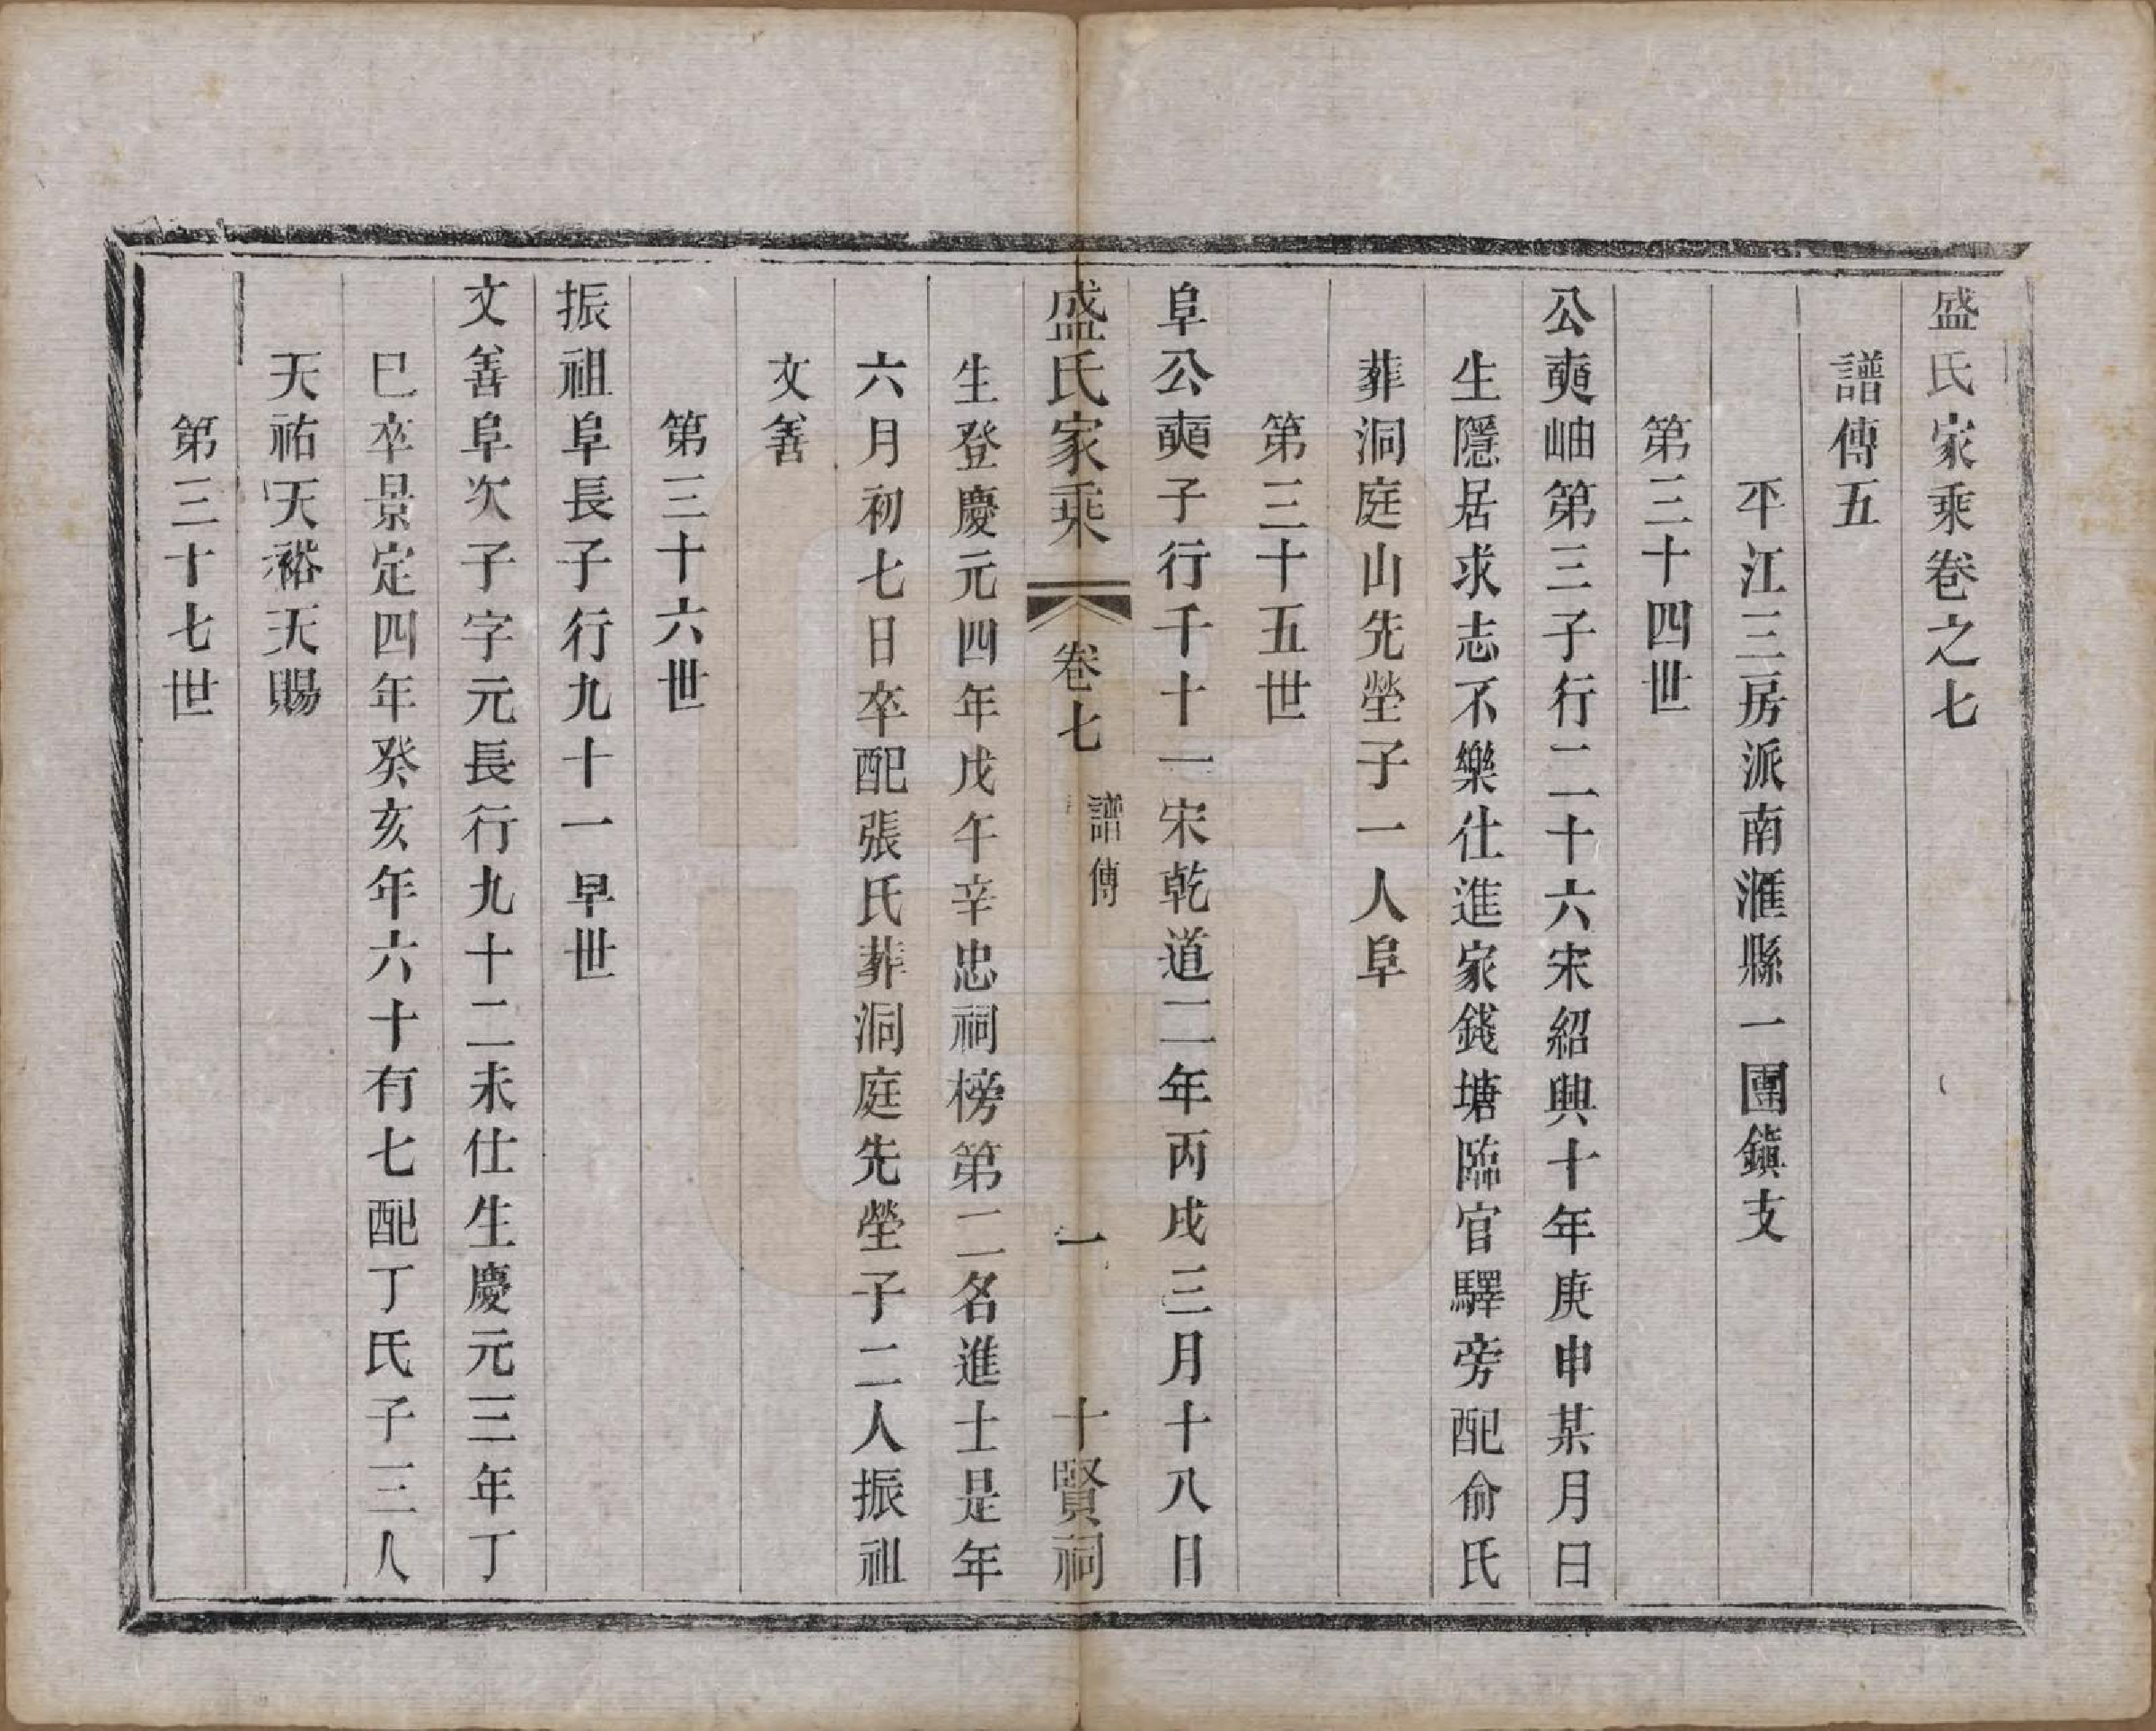 盛氏家乘卷之七
譜傳五
平江三房派南滙縣一團鎮支
第三十四世
公奭岫第三子行二十六宋紹興十年庚申某月日
生隱居求志不樂仕進家錢塘臨官驛旁配俞氏
葬洞庭山先塋子一人阜
第三十五世
阜公奭子行千十一宋乾道二年丙戌三月十八日
盛氏家乘 卷七 譜傳 一 十賢祠
生登慶元四年戊午辛忠祠榜第二名進士是年
六月初七日卒配張氏葬洞庭先塋子二人振祖
文善
第三十六世
振祖阜長子行九十一早世
文善阜次子字元長行九十二未仕生慶元三年丁
巳卒景定四年癸亥年六十有七配丁氏子三人
天祐天裕天賜
第三十七世